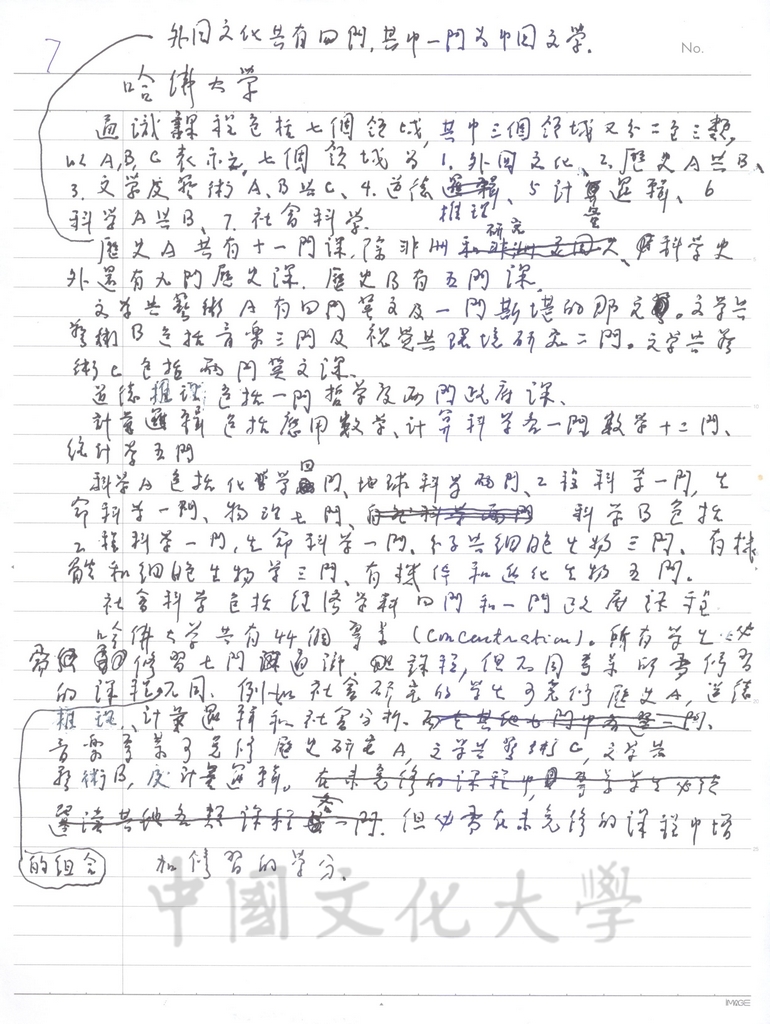 外国文化共有四門,其中一門為中国文学.
7
No.
哈佛大学
通識課程包括七個領域,其中三個領域又分二至三類,
以A,B,C表示之,七個領域為1.外国文化、2.歷史A共B、
3.文学及藝術A、B共C、4.道德邏輯、5計算邏輯、6
推理 量
科学A共B、7.社會科学.
研究
歷史A共有十一門課,除非洲和非洲、科学史
外還有九門歷史課.歷史B有五門課.
文学共藝術A有四門英文及一門斯堪的那文。文学共
藝術B包括音樂三門及視覺共環境研究二門。文学共藝
術C包括兩門英文課.
道德推理包括一門哲学及兩門政府課、
計量邏輯包括應用数学、計算科学各一門数学十二門、
統計学五門
科学A包括化学四門、地球科学兩門、工程科学一門,生
命科学一門、物理七門、科学B包括
工程科学一門,生命科学一門、分子共細胞生物三門、有機
體和細胞生物学三門、有機体和進化生物五門。
社會科学包括經濟学科四門和一門政府課程
哈佛大学共有44個專業(Concentration)。所有学生必
需修習七門通識課程,但不同專業所需修習
的課程不同.例如社會研究的学生可免修歷史A,道德
推理、計量邏輯和社會分析.
音樂專業可免修歷史研究A,文学共藝術C,文学共
藝術B,及計量邏輯。在未免修的課程中,專業学生必須
選讀其他各類課程各一門.但必需在未免修的課程中增
的組合 加修習的学分.
中國文化大學
IMAGE